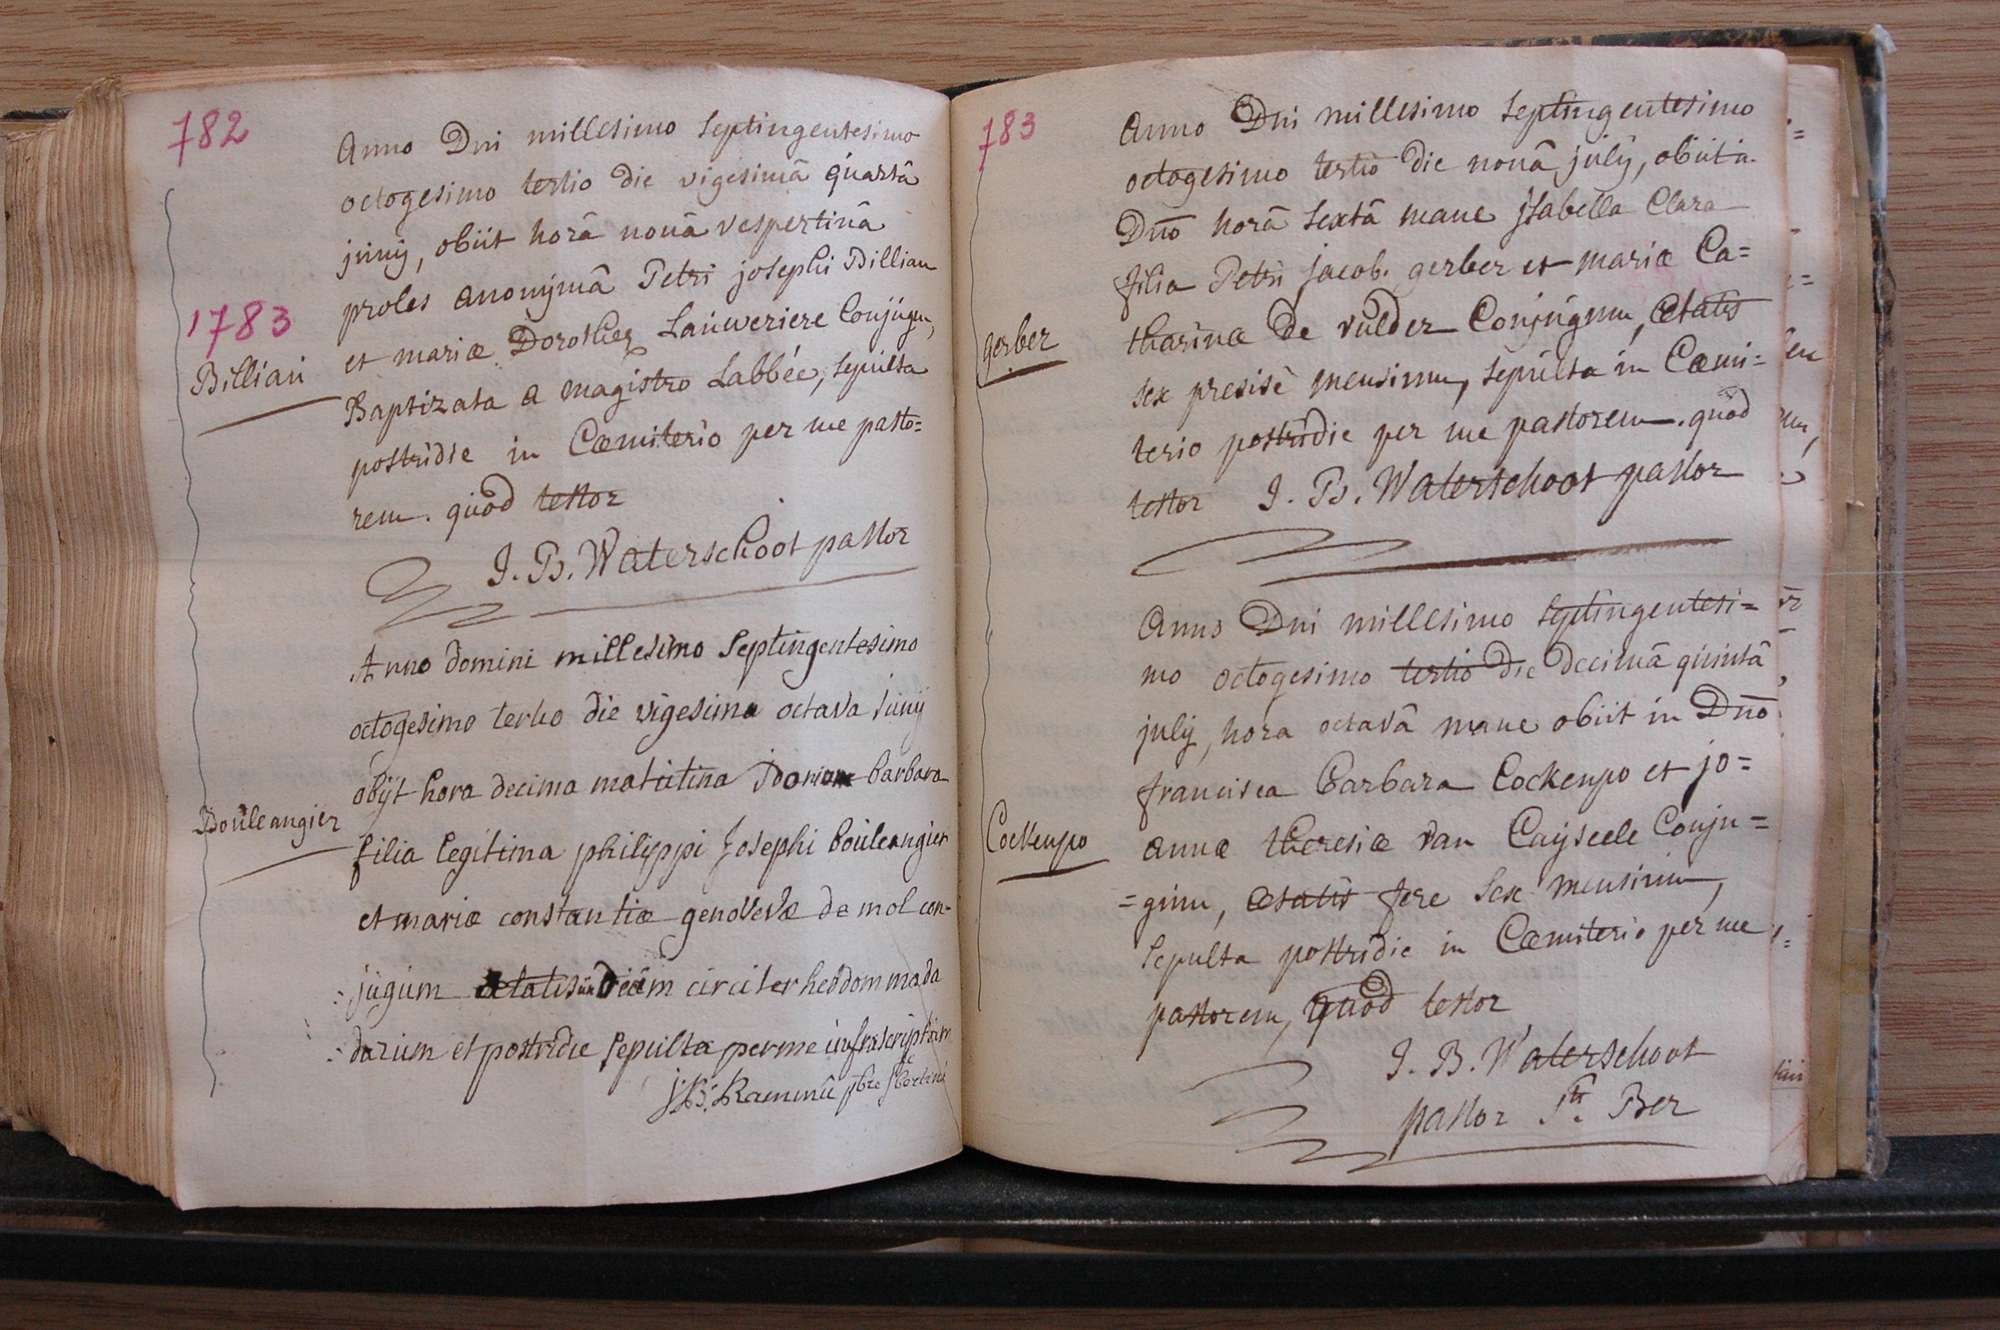 782
Anno Dni millesimo septingentesimo
octogesimo tertio die vigesimâ quartâ
junij, obiit horâ nonâ vespertinâ
proles anonymâ Petri josephi Billiau
1783
Billiau
et mariæ Dorotheæ Lauweriere Conjugu,
Baptizata a magistro Labbée, sepulta
postridie in Cæmiterio per me pasto=
rem. quod testor
J. B. Waterschoot pastor
Anno domini millesimo septingentesimo
octogesimo tertio die vigesima octava junij
obijt hora decima matutina barbara
Bouleangier
filia legitima philippi Josephi bouleangier
et mariæ constantiæ genovevæ de mol con-
jugum ætatis circiter hebdommada
darum et postridie sepulta per me infrascriptum
J: B:
783
Anno Dni millesimo septingentesimo
octogesimo tertio die nonâ julij, obiit in
Dno horâ sextâ mane jsabella Clara
filia Petri jacob. gerber et mariæ Ca=
gerber
tharinæ de vulder Conjugum, ætatis
sex presisè mensium, sepulta in Cæmi=
terio postridie per me pastorem. quod
testor J. B. Waterschoot pastor
Anno Dni millesimo septingentesi=
mo octogesimo tertio die decimâ quintâ
julij, hora octavâ mane obiit in Dno
francisca Barbara Cockenpo et jo=
Cockenpo
annæ theresiæ van Cayseele Conju=
=gum, ætatis fere sex mensium,
sepulta postridie in Cæmiterio per me
pastorem, quod testor
J. B. Waterschoot
pastor Sti. Ber